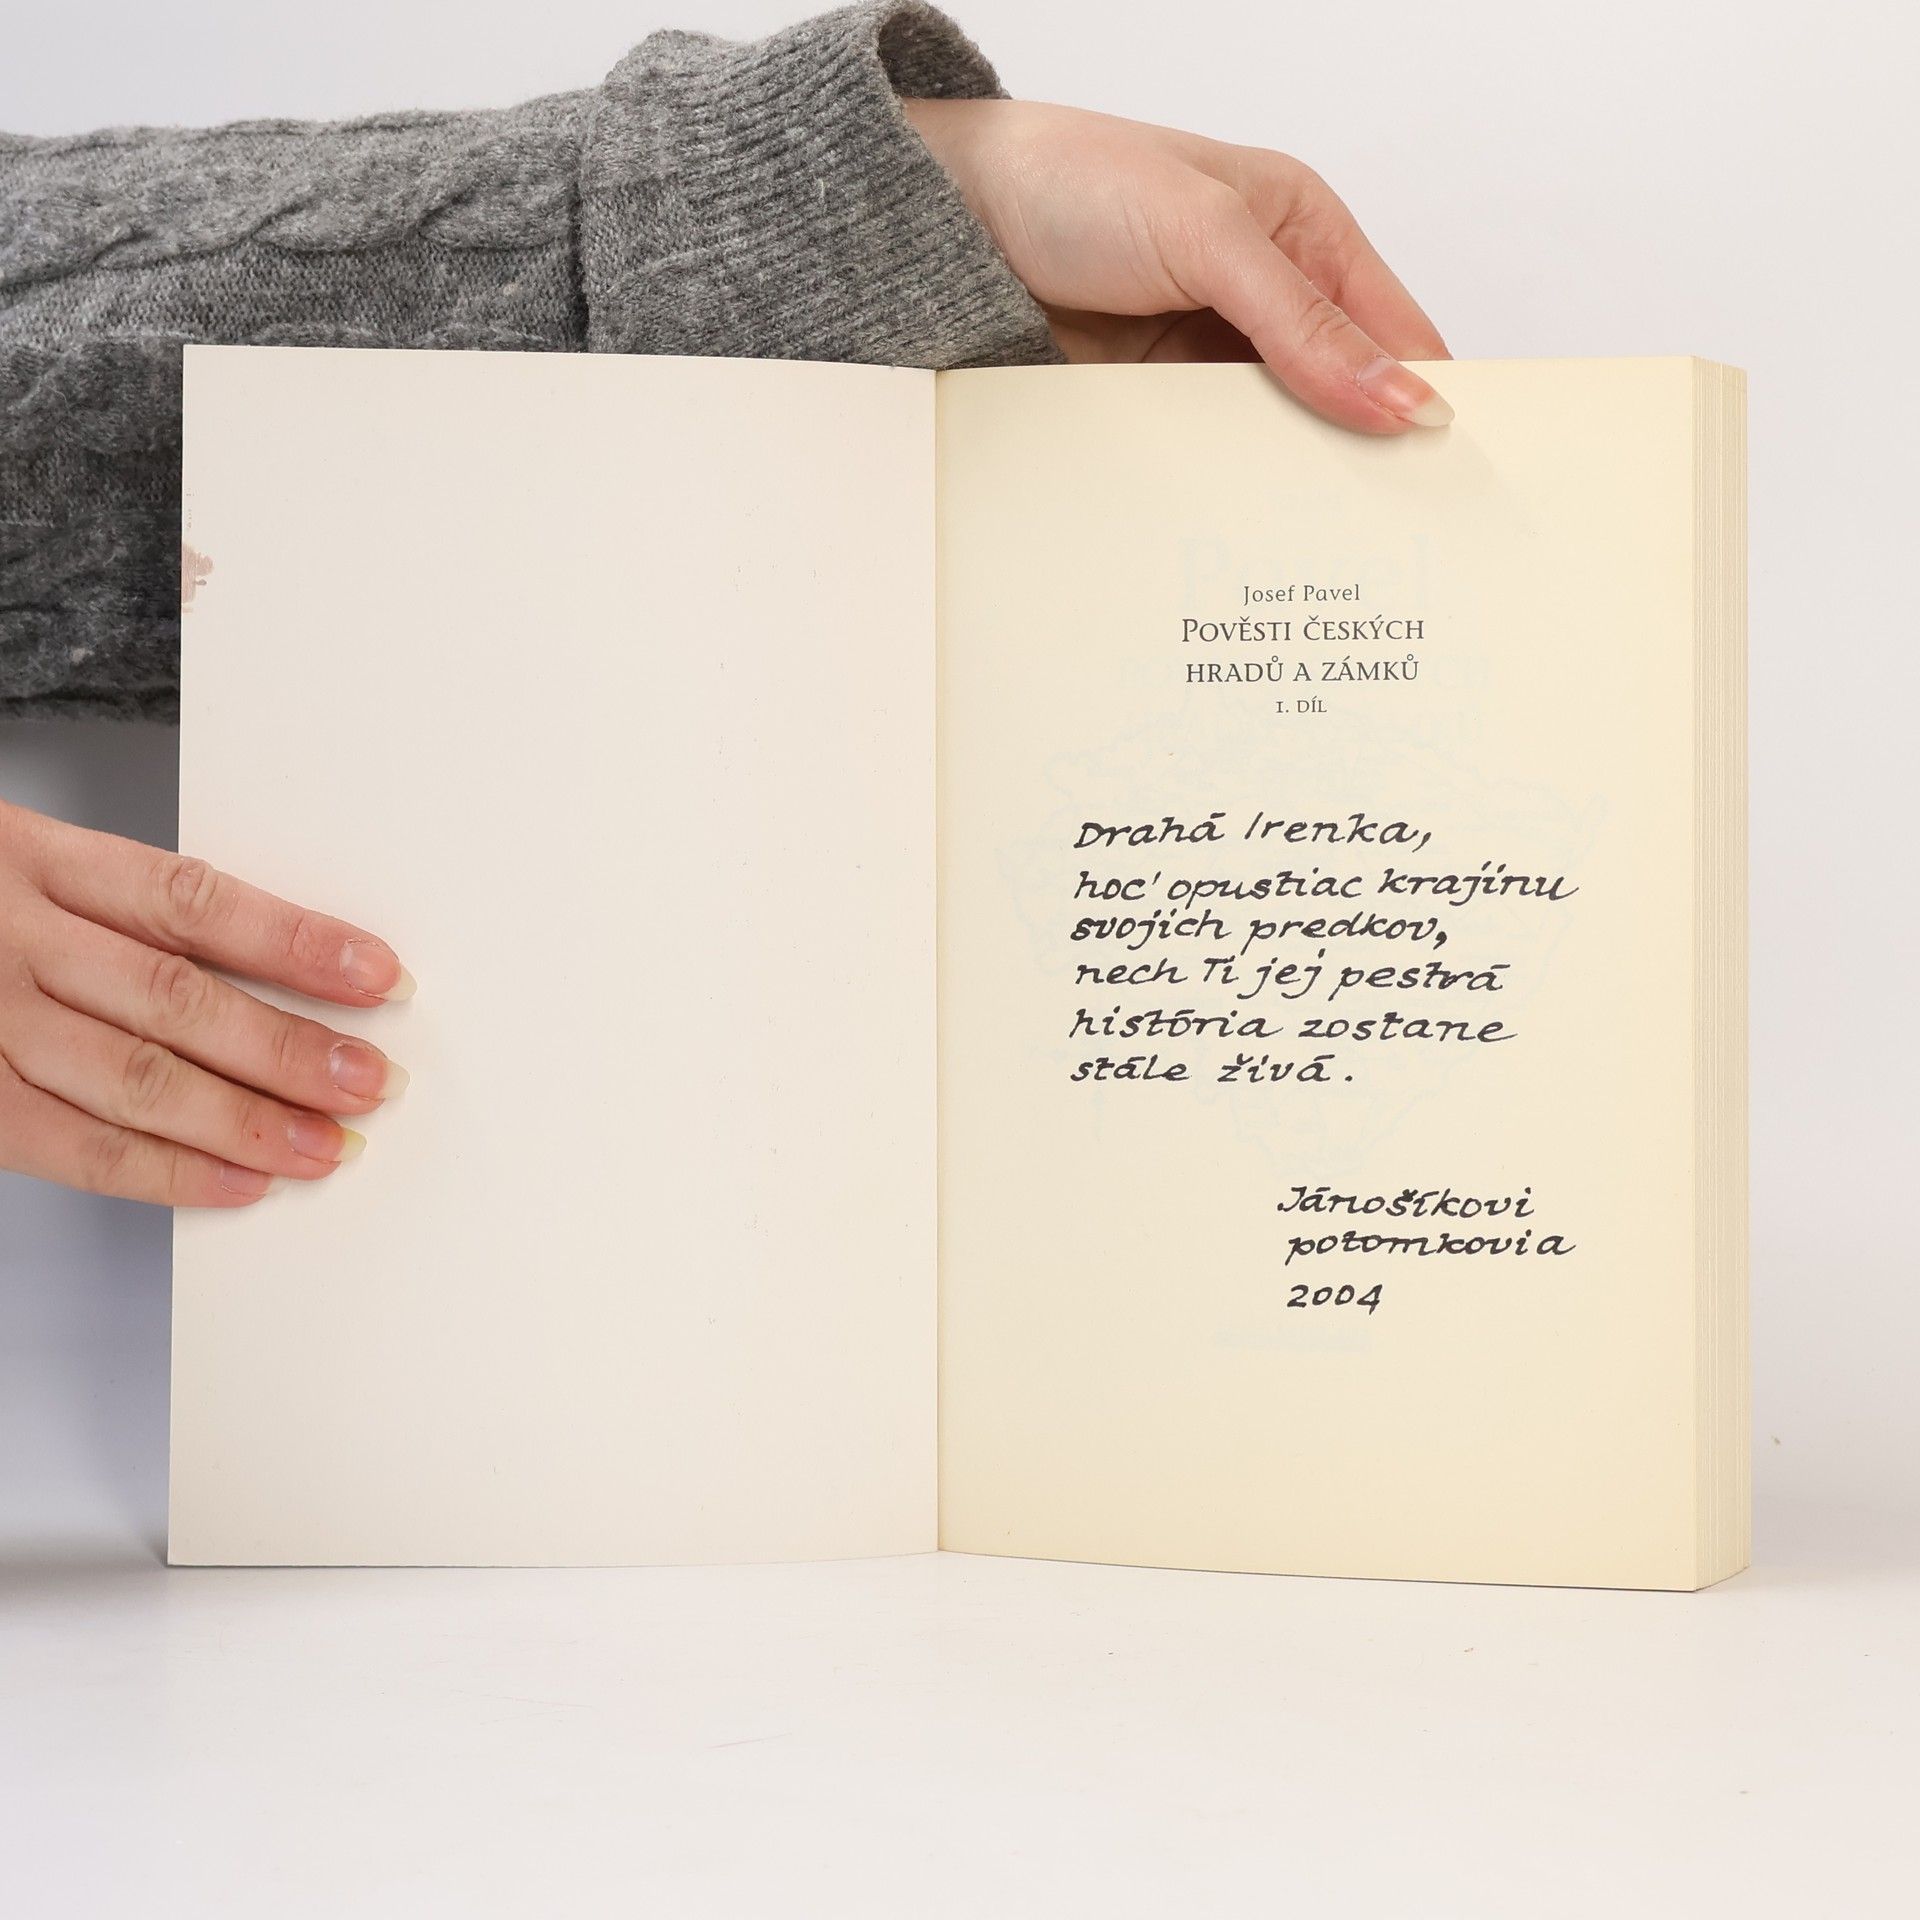 Josef Pavel
POVĚSTI ČESKÝCH
HRADŮ A ZÁMKŮ
1. DÍL
Drahá Irenka,
hoc' opustiac krajinu
svojich predkov,
nech Ti jej pestrá
história zostane
stále živá.
Jánošíkovi
potomkovia
2004